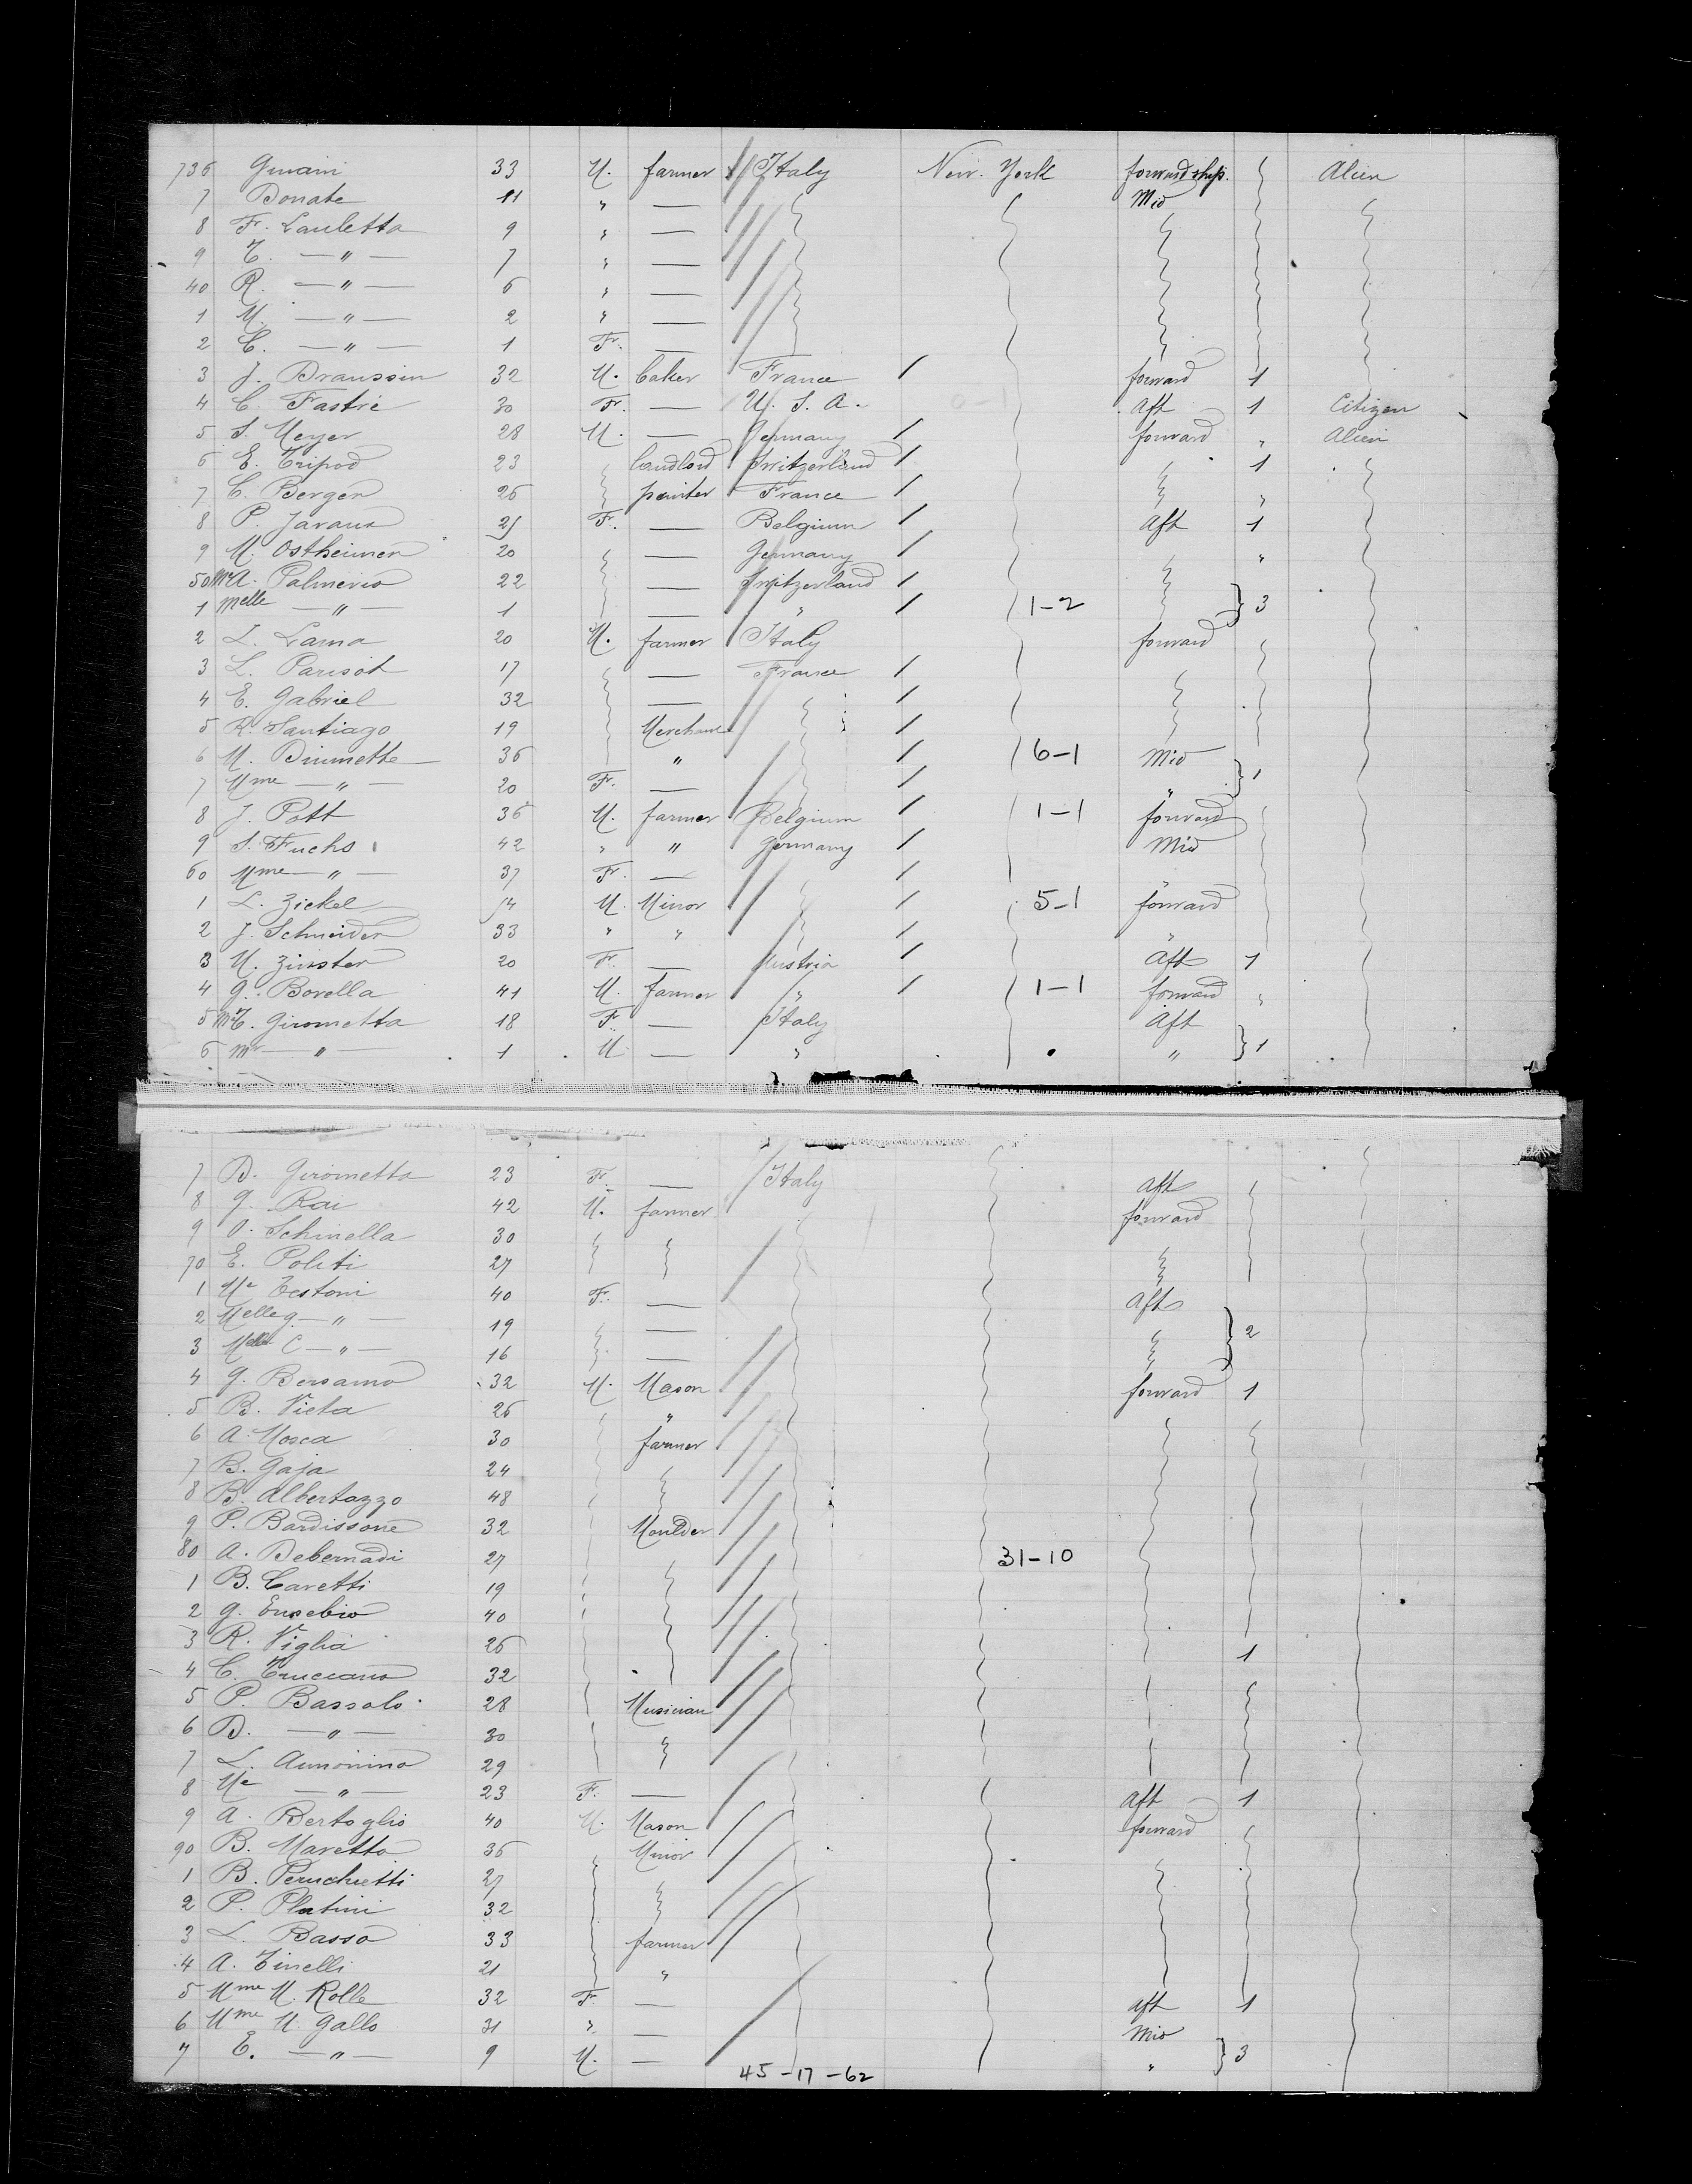 736 Gmaini 33 M. farmer Italy New York forward ship. Alien
7 Donate 11 " — Mid
8 Fr. Lauletta 9 " —
9 T. — " — 7 " —
40 R. — " — 6 " —
1 M. — " — 2 " —
2 C. — " — 1 Fr. —
3 J. Braussin 32 M. baker France / forward 1
4 C. Fastré 30 Fr. — U. S. A. 0-1 aft 1 Citizen
5 S. Meyer 28 M. — Germany / forward " Alien
6 E. Tripod 23 landlord Switzerland / 1
7 C. Berger 26 painter France / "
8 P. Javaux 25 Fr. — Belgium / aft 1
9 M. Ostheimer 20 — Germany / "
50 Me A. Palmerio 22 — Switzerland /
1 Melle — " — 1 — " / 1-2 } 3
2 L. Lama 20 M. farmer Italy forward
3 L. Parisot 17 — France /
4 E. Gabriel 32 — /
5 R. Santiago 19 Merchant /
6 M. Dimmette 36 " / 6-1 Mid
7 Mme — " — 20 Fr. — / " } 1
8 J. Pott 36 M. farmer Belgium / 1-1 forward
9 S. Fuchs 42 " " Germany / Mid
60 Mme — " — 37 Fr. — / "
1 L. Zickel 14 M. Minor / 5-1 forward
2 J. Schneider 33 " " / "
3 M. Zinster 20 Fr. — Austria / Aft 1
4 G. Borella 41 M. farmer " / 1-1 forward "
5 Me T. Girometta 18 Fr. — Italy Aft
6 Mr — " — 1 M — " " } 1
7 D. Girometta 23 Fr. — Italy aft
8 G. Rai 42 M. farmer forward
9 O. Schinella 30
70 E. Politi 27
1 Me Testoni 40 Fr. — aft
2 Melle G. — " — 19 —
3 Melle C — " — 16 — } 2
4 G. Bersamo 32 M. Mason forward 1
5 B. Vieta 26 "
6 A. Mosca 30 farmer
7 B. Gaja 24
8 B. Albertazzo 48
9 P. Bardissone 32 Moulder
80 A. Debernadi 27 31-10
1 B. Caretti 19
2 G. Eusebio 40
3 R. Viglia 26 1
4 C. Truccano 32
5 P. Bassolo 28 Musician
6 D. — " — 30
7 L. Aumonino 29
8 Me — " — 23 Fr. — Aft 1
9 A. Bertoglio 40 M. Mason forward
90 B. Maretto 36 Minor
1 B. Peruchietti 27
2 P. Platini 32
3 L. Basso 33 farmer
4 A. Tinelli 21 "
5 Mme M. Rolle 32 Fr. — aft 1
6 Mme M. Gallo 31 " — Mid
7 E. — " — 9 M. — " } 3
45-17-62